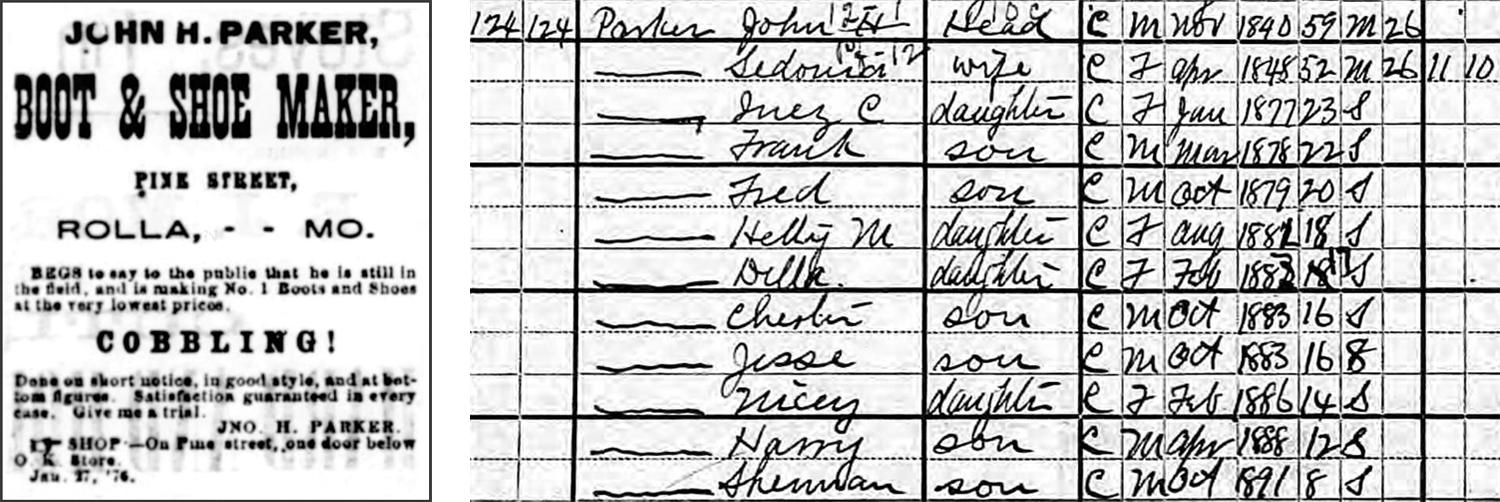 JOHN H. PARKER,
BOOT & SHOE MAKER,
PINE STREET,
ROLLA, - - MO.
BEGS to say to the public that he is still in
the field, and is making No. 1 Boots and Shoes
at the very lowest prices.
COBBLING!
Done on short notice, in good style, and at bot-
tom figures. Satisfaction guaranteed in every
case. Give me a trial.
JNO. H. PARKER.
☞ SHOP—On Pine street, one door below
O. K. Store.
Jan. 27, '76.
124 124 Parker John H Head C M Nov 1840 59 M 26
—— Sedonia wife C F Apr 1848 52 M 26 11 10
—— Inez C daughter C F Jan 1877 23 S
—— Frank son C M Mar 1878 22 S
—— Fred son C M Oct 1879 20 S
—— Hetty M daughter C F Aug 1881 18 S
—— Della daughter C F Feb 1883 17 S
—— Chester son C M Oct 1883 16 S
—— Jesse son C M Oct 1883 16 S
—— Nicey daughter C F Feb 1886 14 S
—— Harry son C M Apr 1888 12 S
—— Sherman son C M Oct 1891 8 S